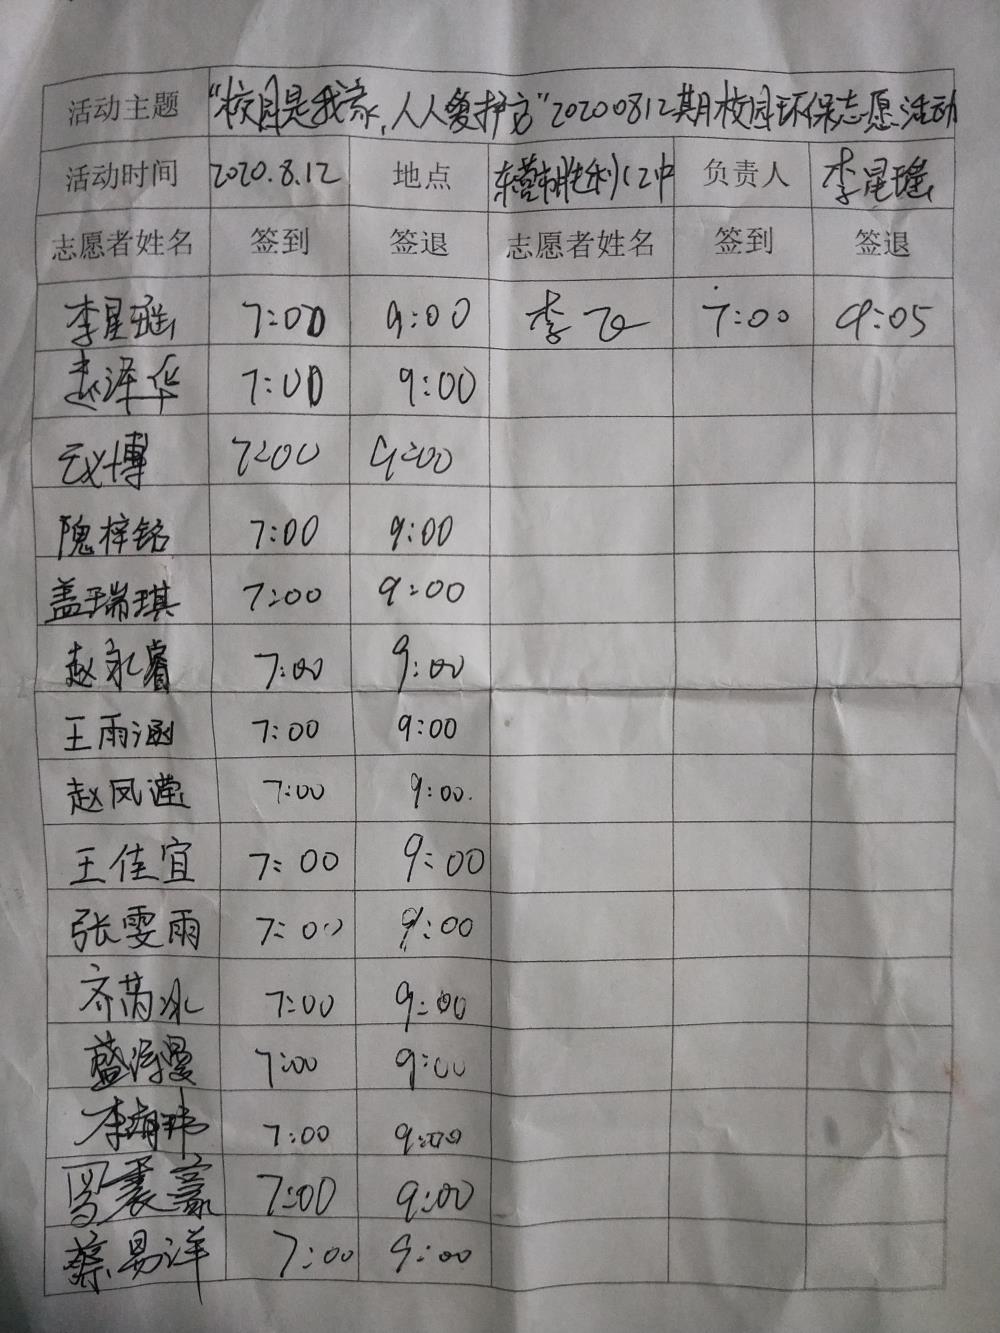 活动主题 "校园是我家,人人爱护它"20200812期校园环保志愿活动
活动时间 2020.8.12 地点 东营市胜利十二中 负责人 李星瑶
志愿者姓名 签到 签退 志愿者姓名 签到 签退
李星瑶 7:00 9:00 李飞 7:00 9:05
袁泽华 7:00 9:00
博 7:00 9:00
隗梓铭 7:00 9:00
盖瑞琪 7:00 9:00
赵永睿 7:00 9:00
王雨涵 7:00 9:00
赵凤滢 7:00 9:00
王佳宜 7:00 9:00
张雯雨 7:00 9:00
齐芮冰 7:00 9:00
7:00 9:00
李 7:00 9:00
7:00 9:00
蔡易洋 7:00 9:00